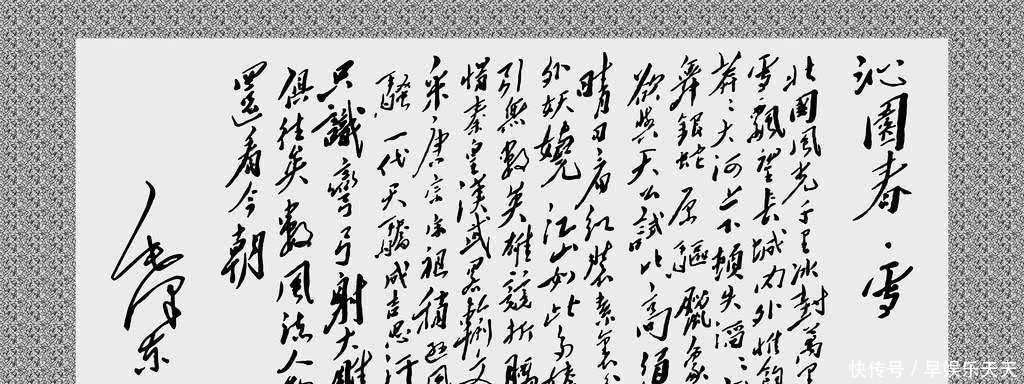 沁園春·雪
北國風光千里冰封萬里
雪飄望長城內外惟餘
莽々大河上下頓失滔々
舞銀蛇原驅臘象
欲與天公試比高須
晴日看紅裝素裹分
外妖嬈江山如此多嬌
引無數英雄競折腰
惜秦皇漢武略輸文
采唐宗宋祖稍遜風
騷一代天驕成吉思汗
只識彎弓射大雕
俱往矣數風流人物
還看今朝
毛澤東
快传号 / 早娱乐天天